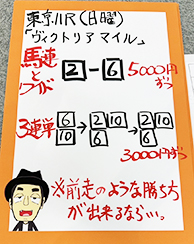 東京11R(日曜)
「ヴィクトリアマイル」
馬連とワイド 2-6 5000円ずつ
3連単 6 10 → 2 6 10 → 2 6 10
3000円ずつ
※前走のような勝ち方
が出来るなら…。